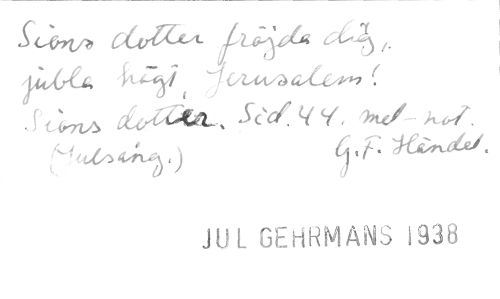 Sions dotter fröjda dig,
jubla högt, Jerusalem!
Sions dotter. Sid. 44. mel-not.
(Julsång.) G.F. Händel.
JUL GEHRMANS 1938